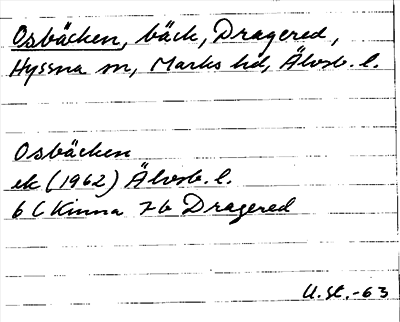 Osbäcken, bäck, Dragered,
Hyssna sn, Marks hd, Älvsb. l.
Osbäcken
ek (1962) Älvsb. l.
6 C Kinna 7b Dragered
U. St. -63